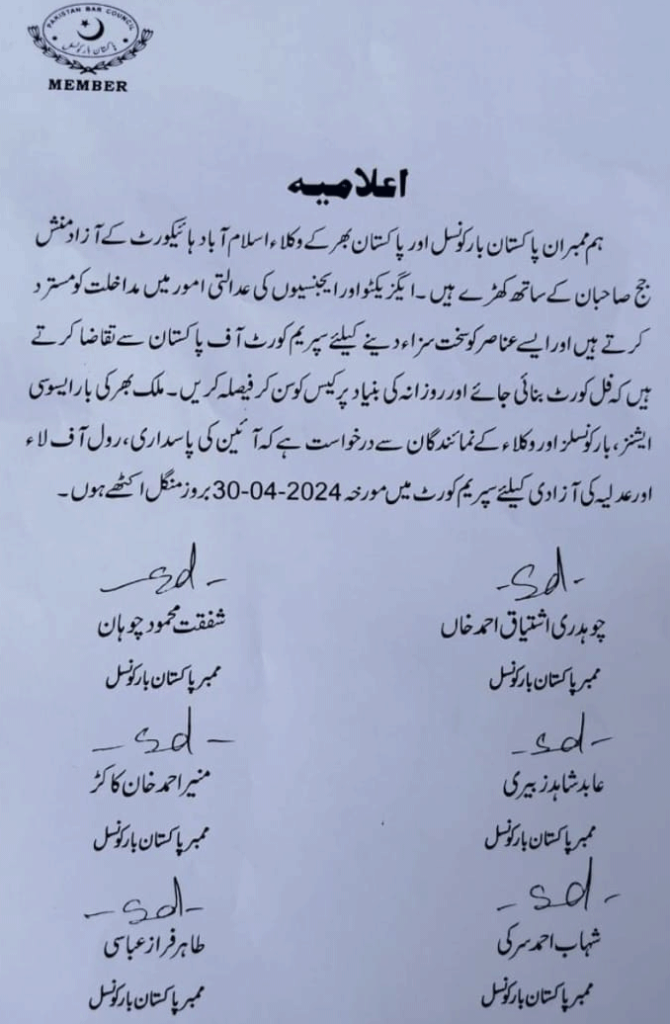 PAKISTAN BAR COUNCIL
پاکستان بار کونسل
MEMBER
اعلامیہ
ہم ممبران پاکستان بار کونسل اور پاکستان بھر کے وکلاء اسلام آباد ہائیکورٹ کے آزاد منش
جج صاحبان کے ساتھ کھڑے ہیں۔ ایگزیکٹو اور ایجنسیوں کی عدالتی امور میں مداخلت کو مسترد
کرتے ہیں اور ایسے عناصر کو سخت سزاء دینے کیلئے سپریم کورٹ آف پاکستان سے تقاضا کرتے
ہیں کہ فل کورٹ بنائی جائے اور روزانہ کی بنیاد پر کیس کو سن کر فیصلہ کریں۔ ملک بھر کی بار ایسوسی
ایشنز، بار کونسلز اور وکلاء کے نمائندگان سے درخواست ہے کہ آئین کی پاسداری، رول آف لاء
اور عدلیہ کی آزادی کیلئے سپریم کورٹ میں مورخہ 30-04-2024 بروز منگل اکٹھے ہوں۔
-sd- -sd-
چوہدری اشتیاق احمد خاں شفقت محمود چوہان
ممبر پاکستان بار کونسل ممبر پاکستان بار کونسل
-sd- -sd-
عابد شاہد زبیری منیر احمد خان کاکڑ
ممبر پاکستان بار کونسل ممبر پاکستان بار کونسل
-sd- -sd-
شہاب احمد سرکی طاہر فراز عباسی
ممبر پاکستان بار کونسل ممبر پاکستان بار کونسل